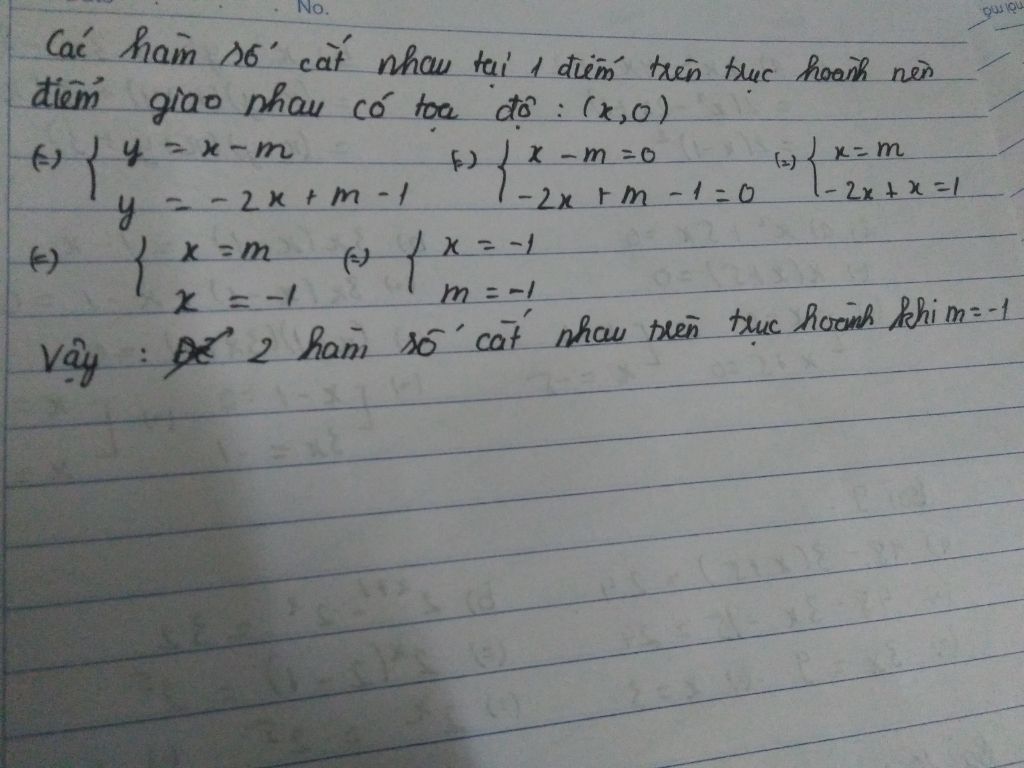 No.
Các hàm số cắt nhau tại 1 điểm trên trục hoành nên
điểm giao nhau có tọa độ : (x,0)
(=) { y = x - m (=) { x - m = 0 (=) { x = m
y = -2x + m - 1 -2x + m - 1 = 0 -2x + x = 1
(=) { x = m (=) { x = -1
x = -1 m = -1
Vậy : 2 hàm số cắt nhau trên trục hoành khi m = -1